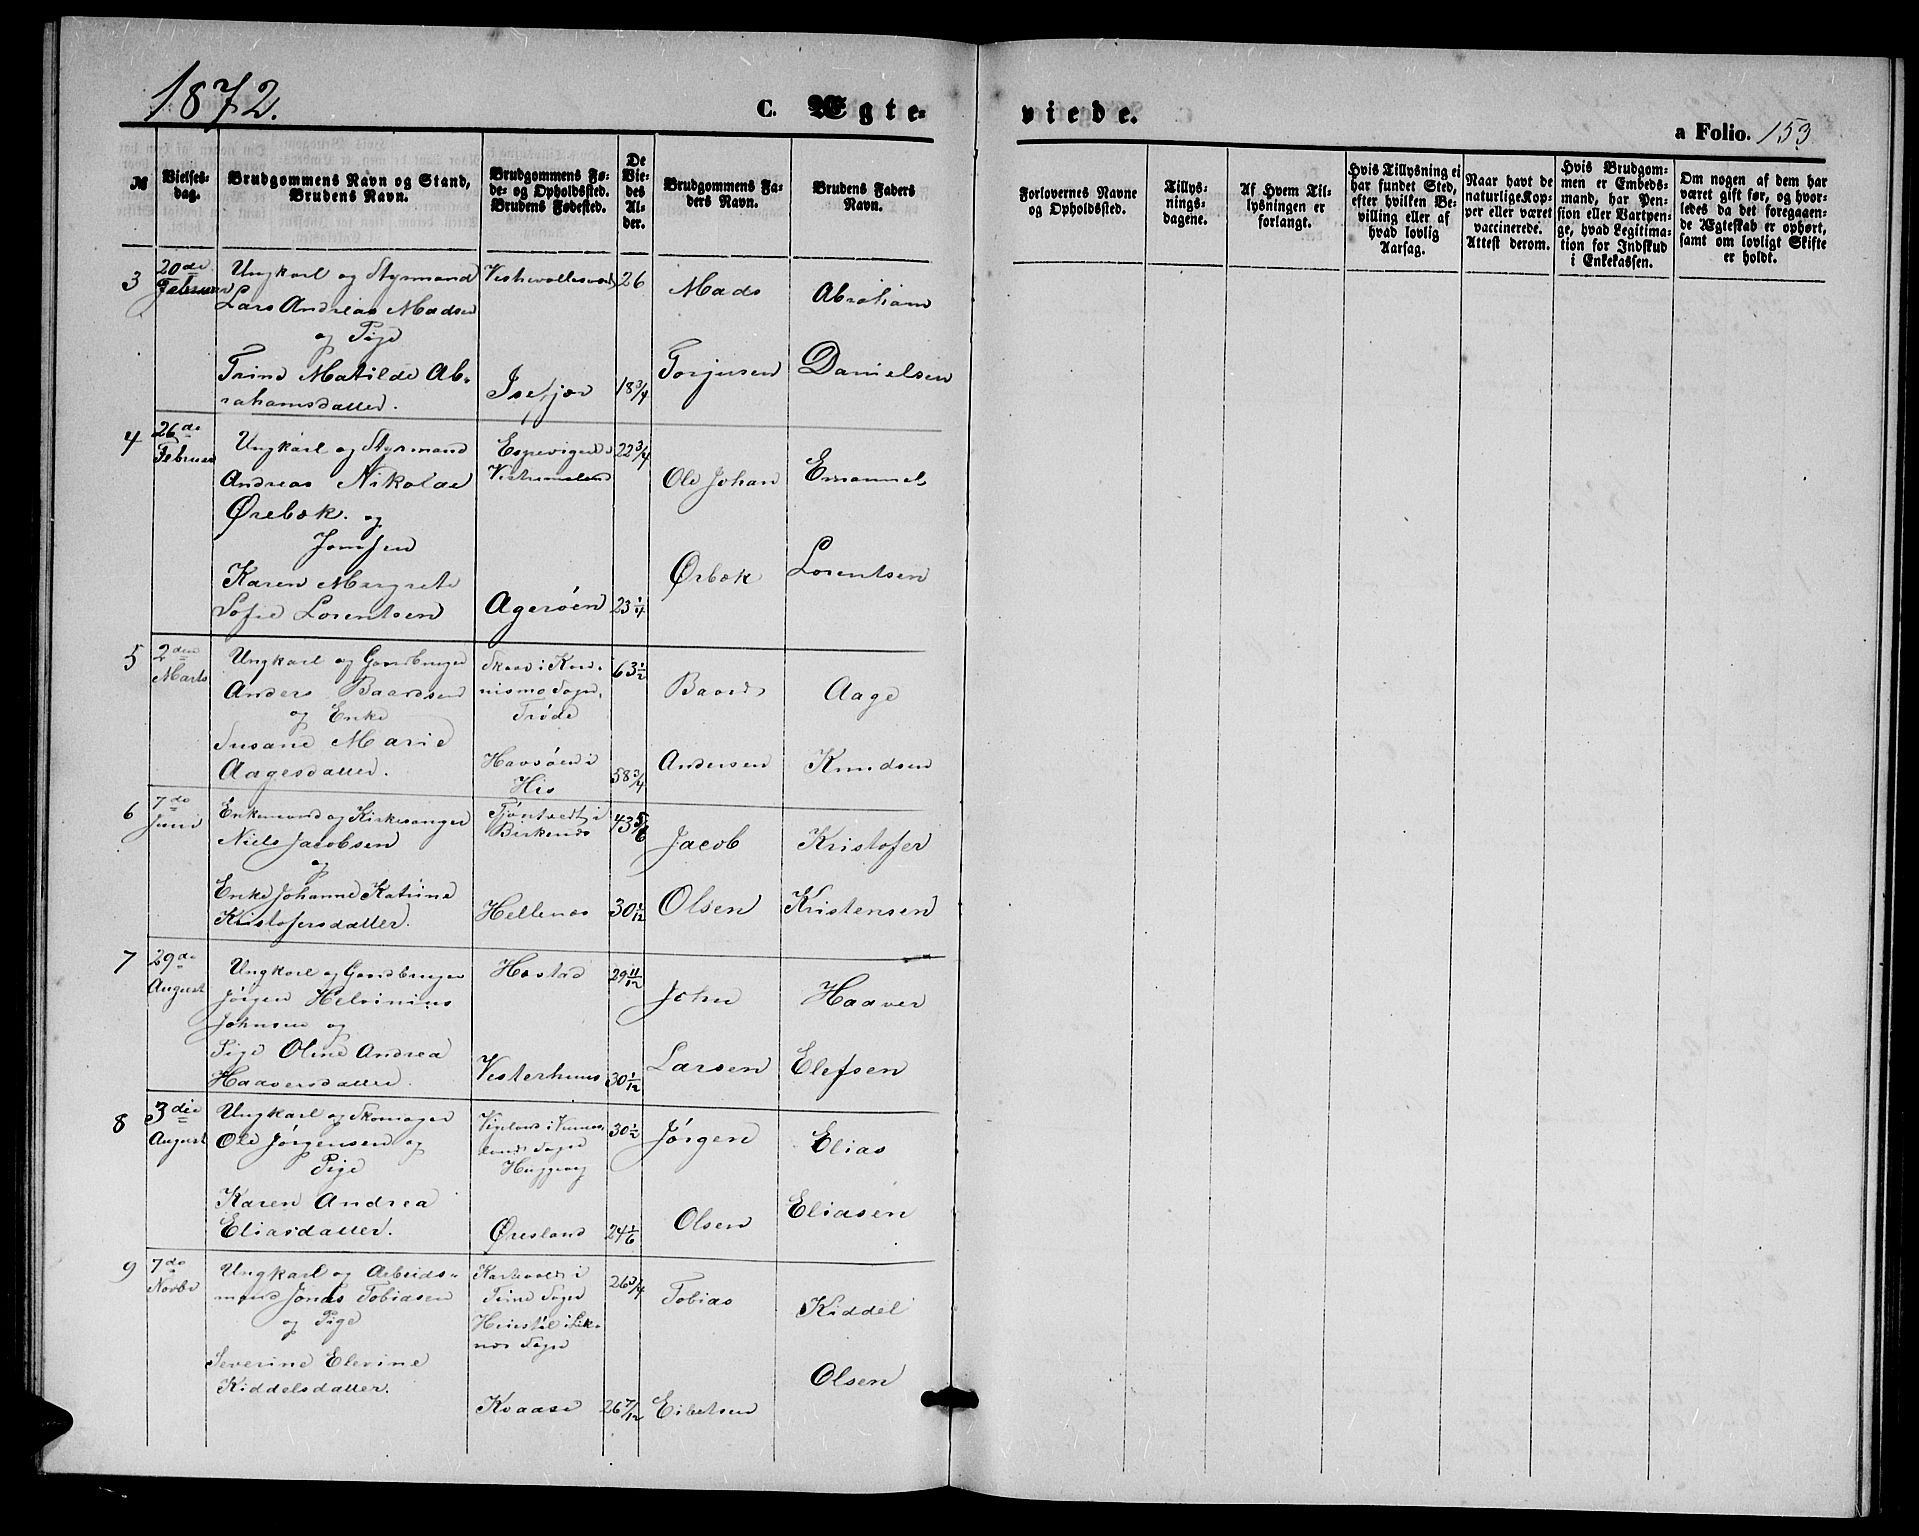 1872.
C. Ægte-
viede.
a Folio. 153
№
Vielses-
dag.
Brudgommens Navn og Stand,
Brudens Navn.
Brudgommens Fø-
de- og Opholdssted.
Brudens Fødested.
De
Vie-
des
Al-
der.
Brudgommens Fa-
ders Navn.
Brudens Faders
Navn.
Forlovernes Navne
og Opholdssted.
Tillys-
nings-
dagene.
Af Hvem Til-
lysningen er
forlangt.
Hvis Tillysning ei
har fundet Sted,
efter hvilken Be-
villing eller af
hvad lovlig
Aarsag.
Naar havt de
naturlige Kop-
per eller været
vaccinerede.
Attest derom.
Hvis Brudgom-
men er Embeds-
mand, har Pen-
sion eller Vartpen-
ge, hvad Legitima-
tion for Indskud
i Enkekassen.
Om nogen af dem har
været gift før, og hvor-
ledes da det foregaaen-
de Ægteskab er ophørt,
samt om lovligt Skifte
er holdt.
3
20de
Februar
Ungkarl og Styrmand
Lars Andreas Madsen
og Pige
Trine Matilde Ab-
rahamsdatter.
Isefjær
26
18 3/4
Mads
Torjusen
Abraham
Danielsen
4
26de
Februar
Ungkarl og Styrmand
Andreas Nikolae
Ørebæk. og
Jomfru
Karen Margrete
Sofie Lorentsen
Agerøen
22 3/4
23 1/4
Ole Johan
Ørbæk
Emanuel
Lorentsen
5
2den
Marts
Ungkarl og Gaardbruger
Anders Baardsen
og Enke
Susane Marie
Aagesdatter.
Trøde
Havsøen i
His
63 1/2
58 3/4
Baard
Andersen
Aage
Knudsen
6
7de
Juni
Enkemand og Kirkesanger
Niels Jacobsen
og
Enke Johanne Katrine
Kristofersdatter.
Tjøntvedt i
Birkenæs
Hellenæs
43 5/6
30 1/12
Jacob
Olsen
Kristofer
Kristensen
7
29de
August
Ungkarl og Gaardbruger
Jörgen Helvinius
Johnsen og
Pige Oline Andrea
Haaversdatter.
Hæstad
Vesterhuus
29 11/12
30 1/12
John
Larsen
Haaver
Elefsen
8
3die
August
Ungkarl og Skomager
Ole Jörgensen og
Pige
Karen Andrea
Eliasdatter.
Øresland
30 1/2
24 1/6
Jörgen
Olsen
Elias
Eliasen
9
7de
Novbr
Ungkarl og Arbeids-
mand Jonas Tobiasen
og Pige
Severine Elevine
Kiddelsdatter.
Kvaase
26 3/4
26 7/12
Tobias
Eibetsen
Kiddel
Olsen